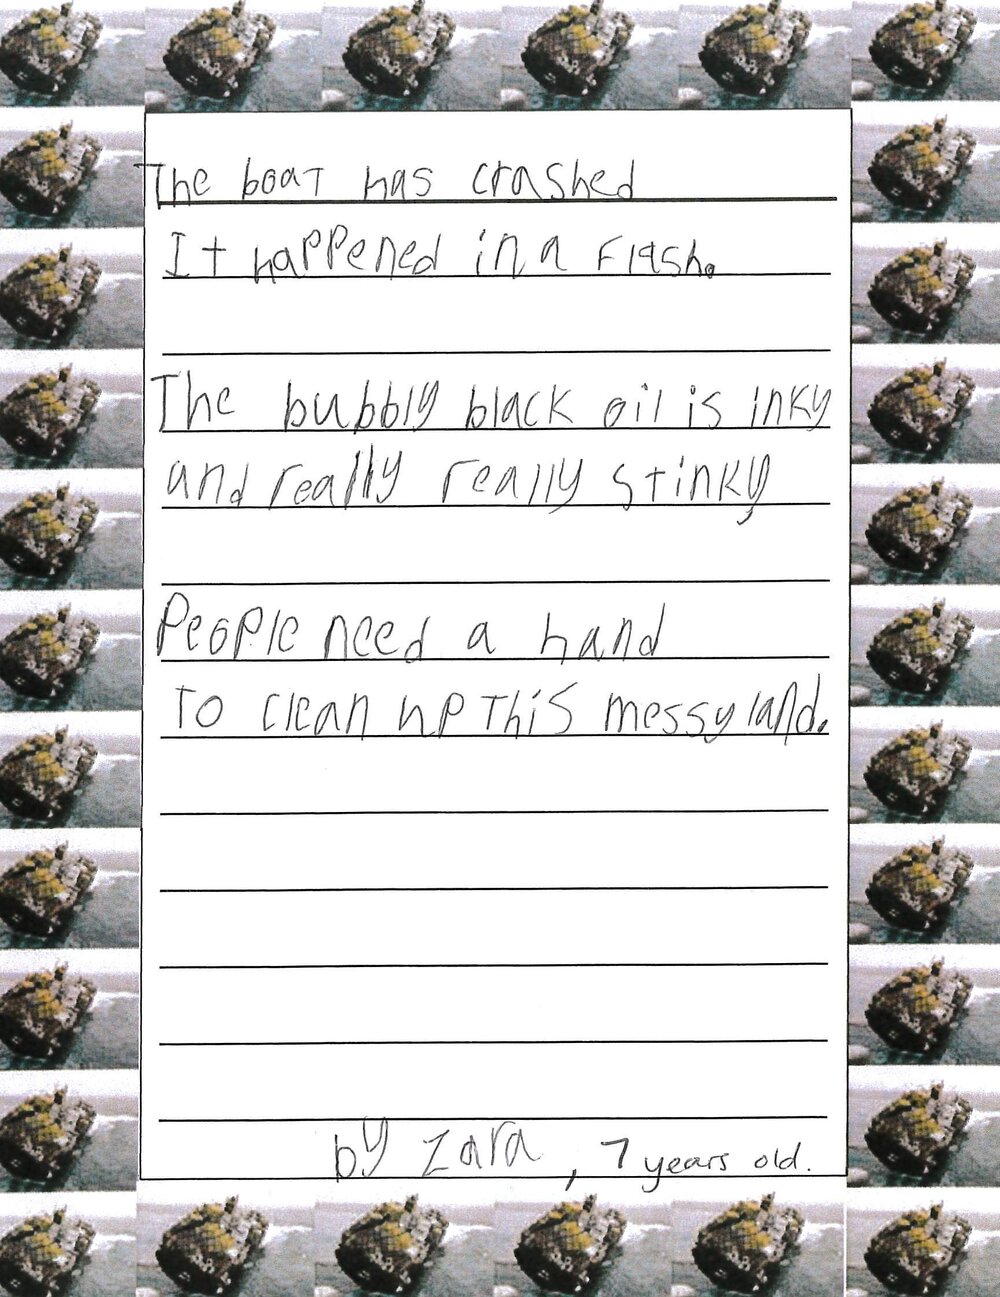 The boat has crashed
It happened in a Flash.
The bubbly black oil is inky
and really really stinky
People need a hand
To clean up This messy land.
by Zara, 7 years old.